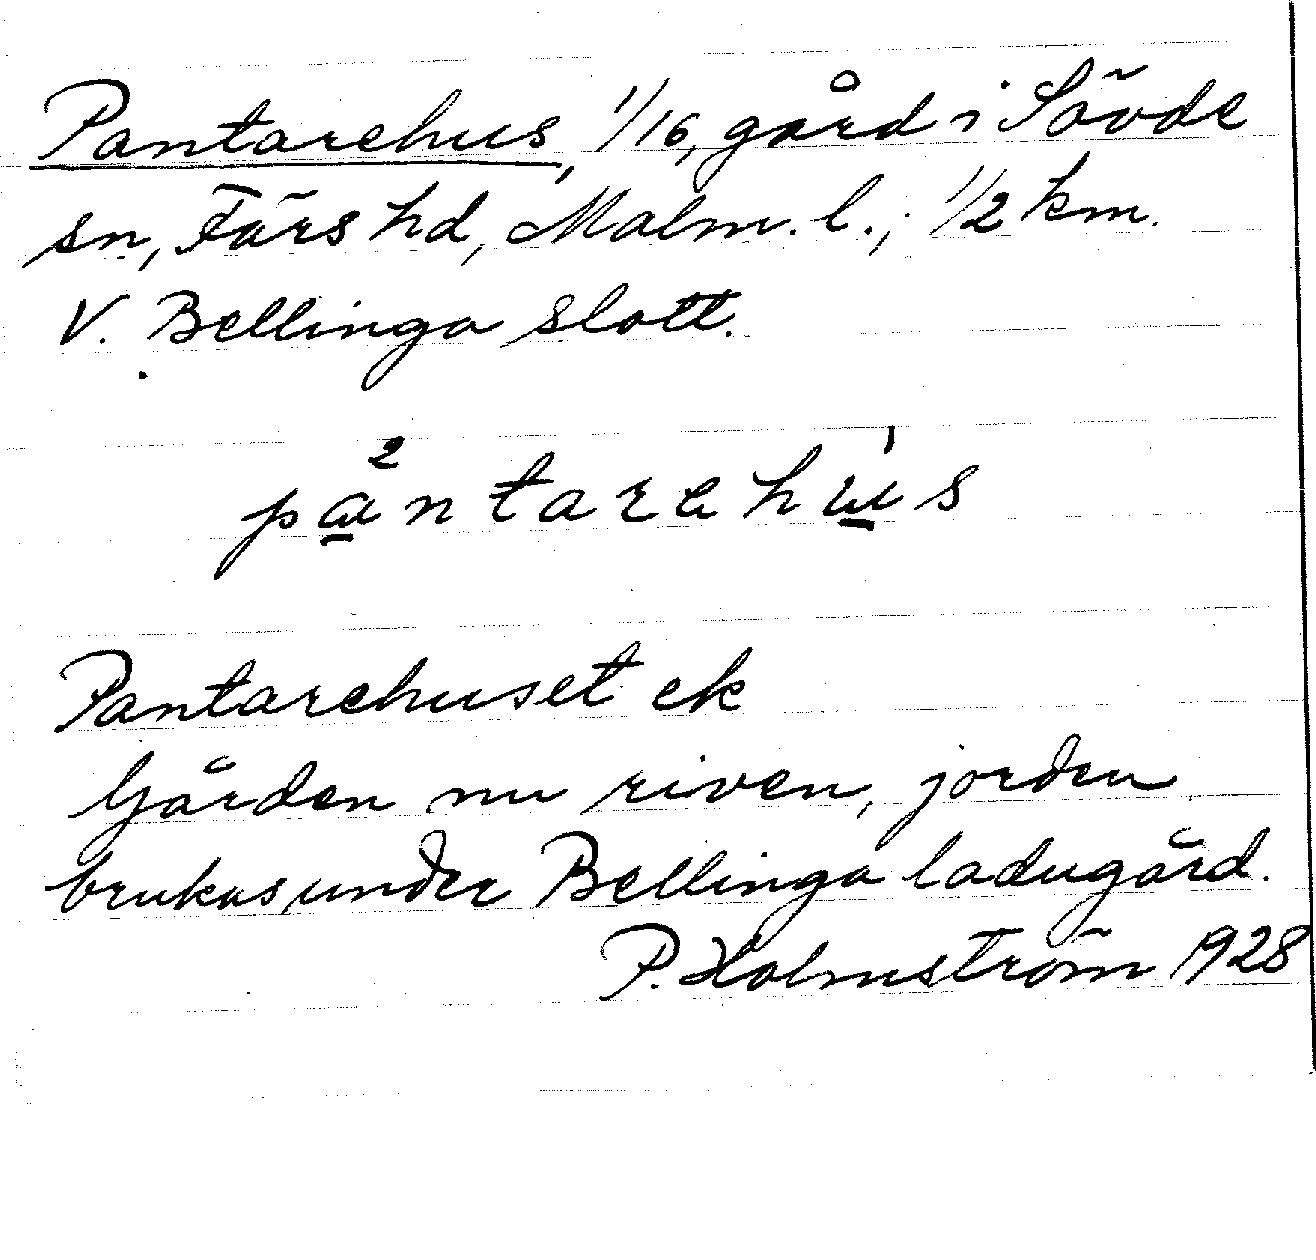 Pantarehus, 1/16, gård i Sövde
sn, Färs hd, Malm. l.; 1/2 km.
V. Bellinga slott.
pa²ntarehu¹s
Pantarehuset ek
Gården nu riven, jorden
brukas under Bellinga ladugård.
P. Holmström 1928